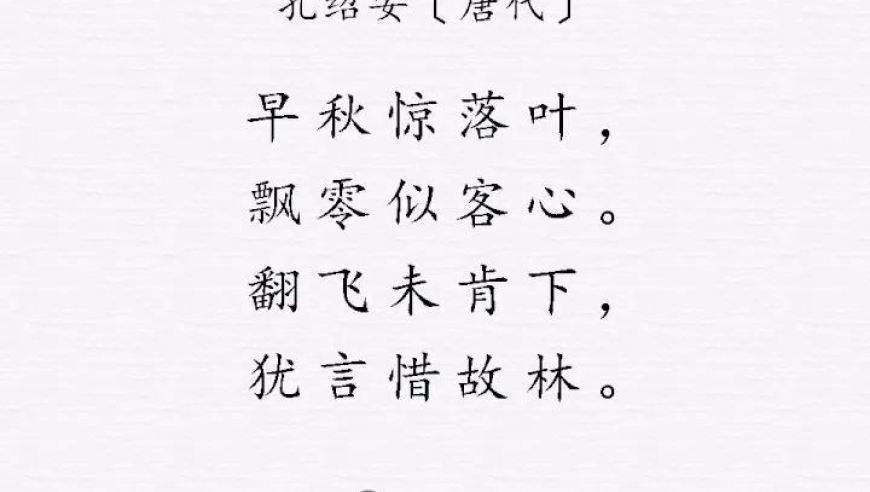 孔绍安〔唐代〕
早秋惊落叶，
飘零似客心。
翻飞未肯下，
犹言惜故林。